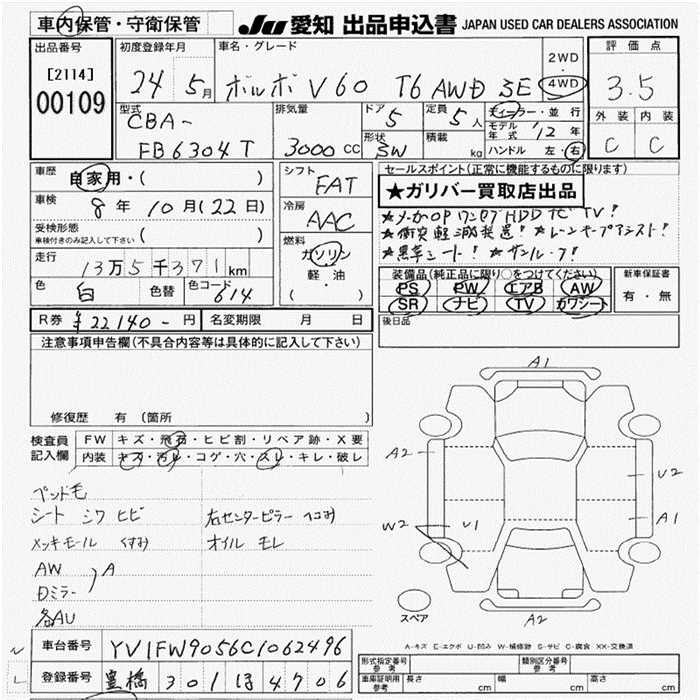 車内保管・守衛保管
JU 愛知 出品申込書 JAPAN USED CAR DEALERS ASSOCIATION
出品番号
[2114]
00109
初度登録年月
24 5月
車名・グレード
ボルボ V60 T6 AWD SE
2WD
・
4WD
評価点
3.5
外装 内装
C C
型式
CBA-
FB6304T
排気量
3000 cc
ドア
5
形状
SW
定員
5人
積載
kg
ディーラー・並行
モデル年式 '12年
ハンドル 左・右
車歴
自家用・( )
車検
8年 10月(22日)
受検形態
車検付きのみ記入して下さい ( )
走行
13万5千371km
色
白
色替
色コード
614
シフト
FAT
冷房
AAC
燃料
ガソリン
軽油
( ・ )
セールスポイント(正常に機能するものに限ります)
★ガリバー買取店出品
★メーカOPワンセグHDDナビTV!
★衝突軽減装置! ★レーンキープアシスト!
★黒革シート! ★サンルーフ!
装備品(純正品に限り○をつけてください)
PS PW エアB AW
SR ナビ TV カワシート
新車保証書
有・無
後日品
R券 ¥22140-円
名変期限 月 日
注意事項申告欄(不具合内容等は具体的に記入して下さい)
修復歴 有 (箇所
検査員
記入欄
FW キズ・飛石・ヒビ割・リペア跡・X要
内装 キズ・汚レ・コゲ・穴・スレ・キレ・破レ
ペンド毛
シート シワ ヒビ
メッキモール くすみ
AW
Dミラー
A
各AU
右センターピラー ヘコみ
オイル モレ
A1
A2
U2
A1
W2
U1
A2
スペア
A-キズ E-エクボ U-凹み W-補修跡 S-サビ C-腐食 XX-交換済
車台番号 YV1FW9056C1062496
登録番号 豊橋 301 ほ 4706
型式指定番号
参考
類別区分番号
参考
車庫証明用
参考
長さ cm
幅 cm
高さ cm